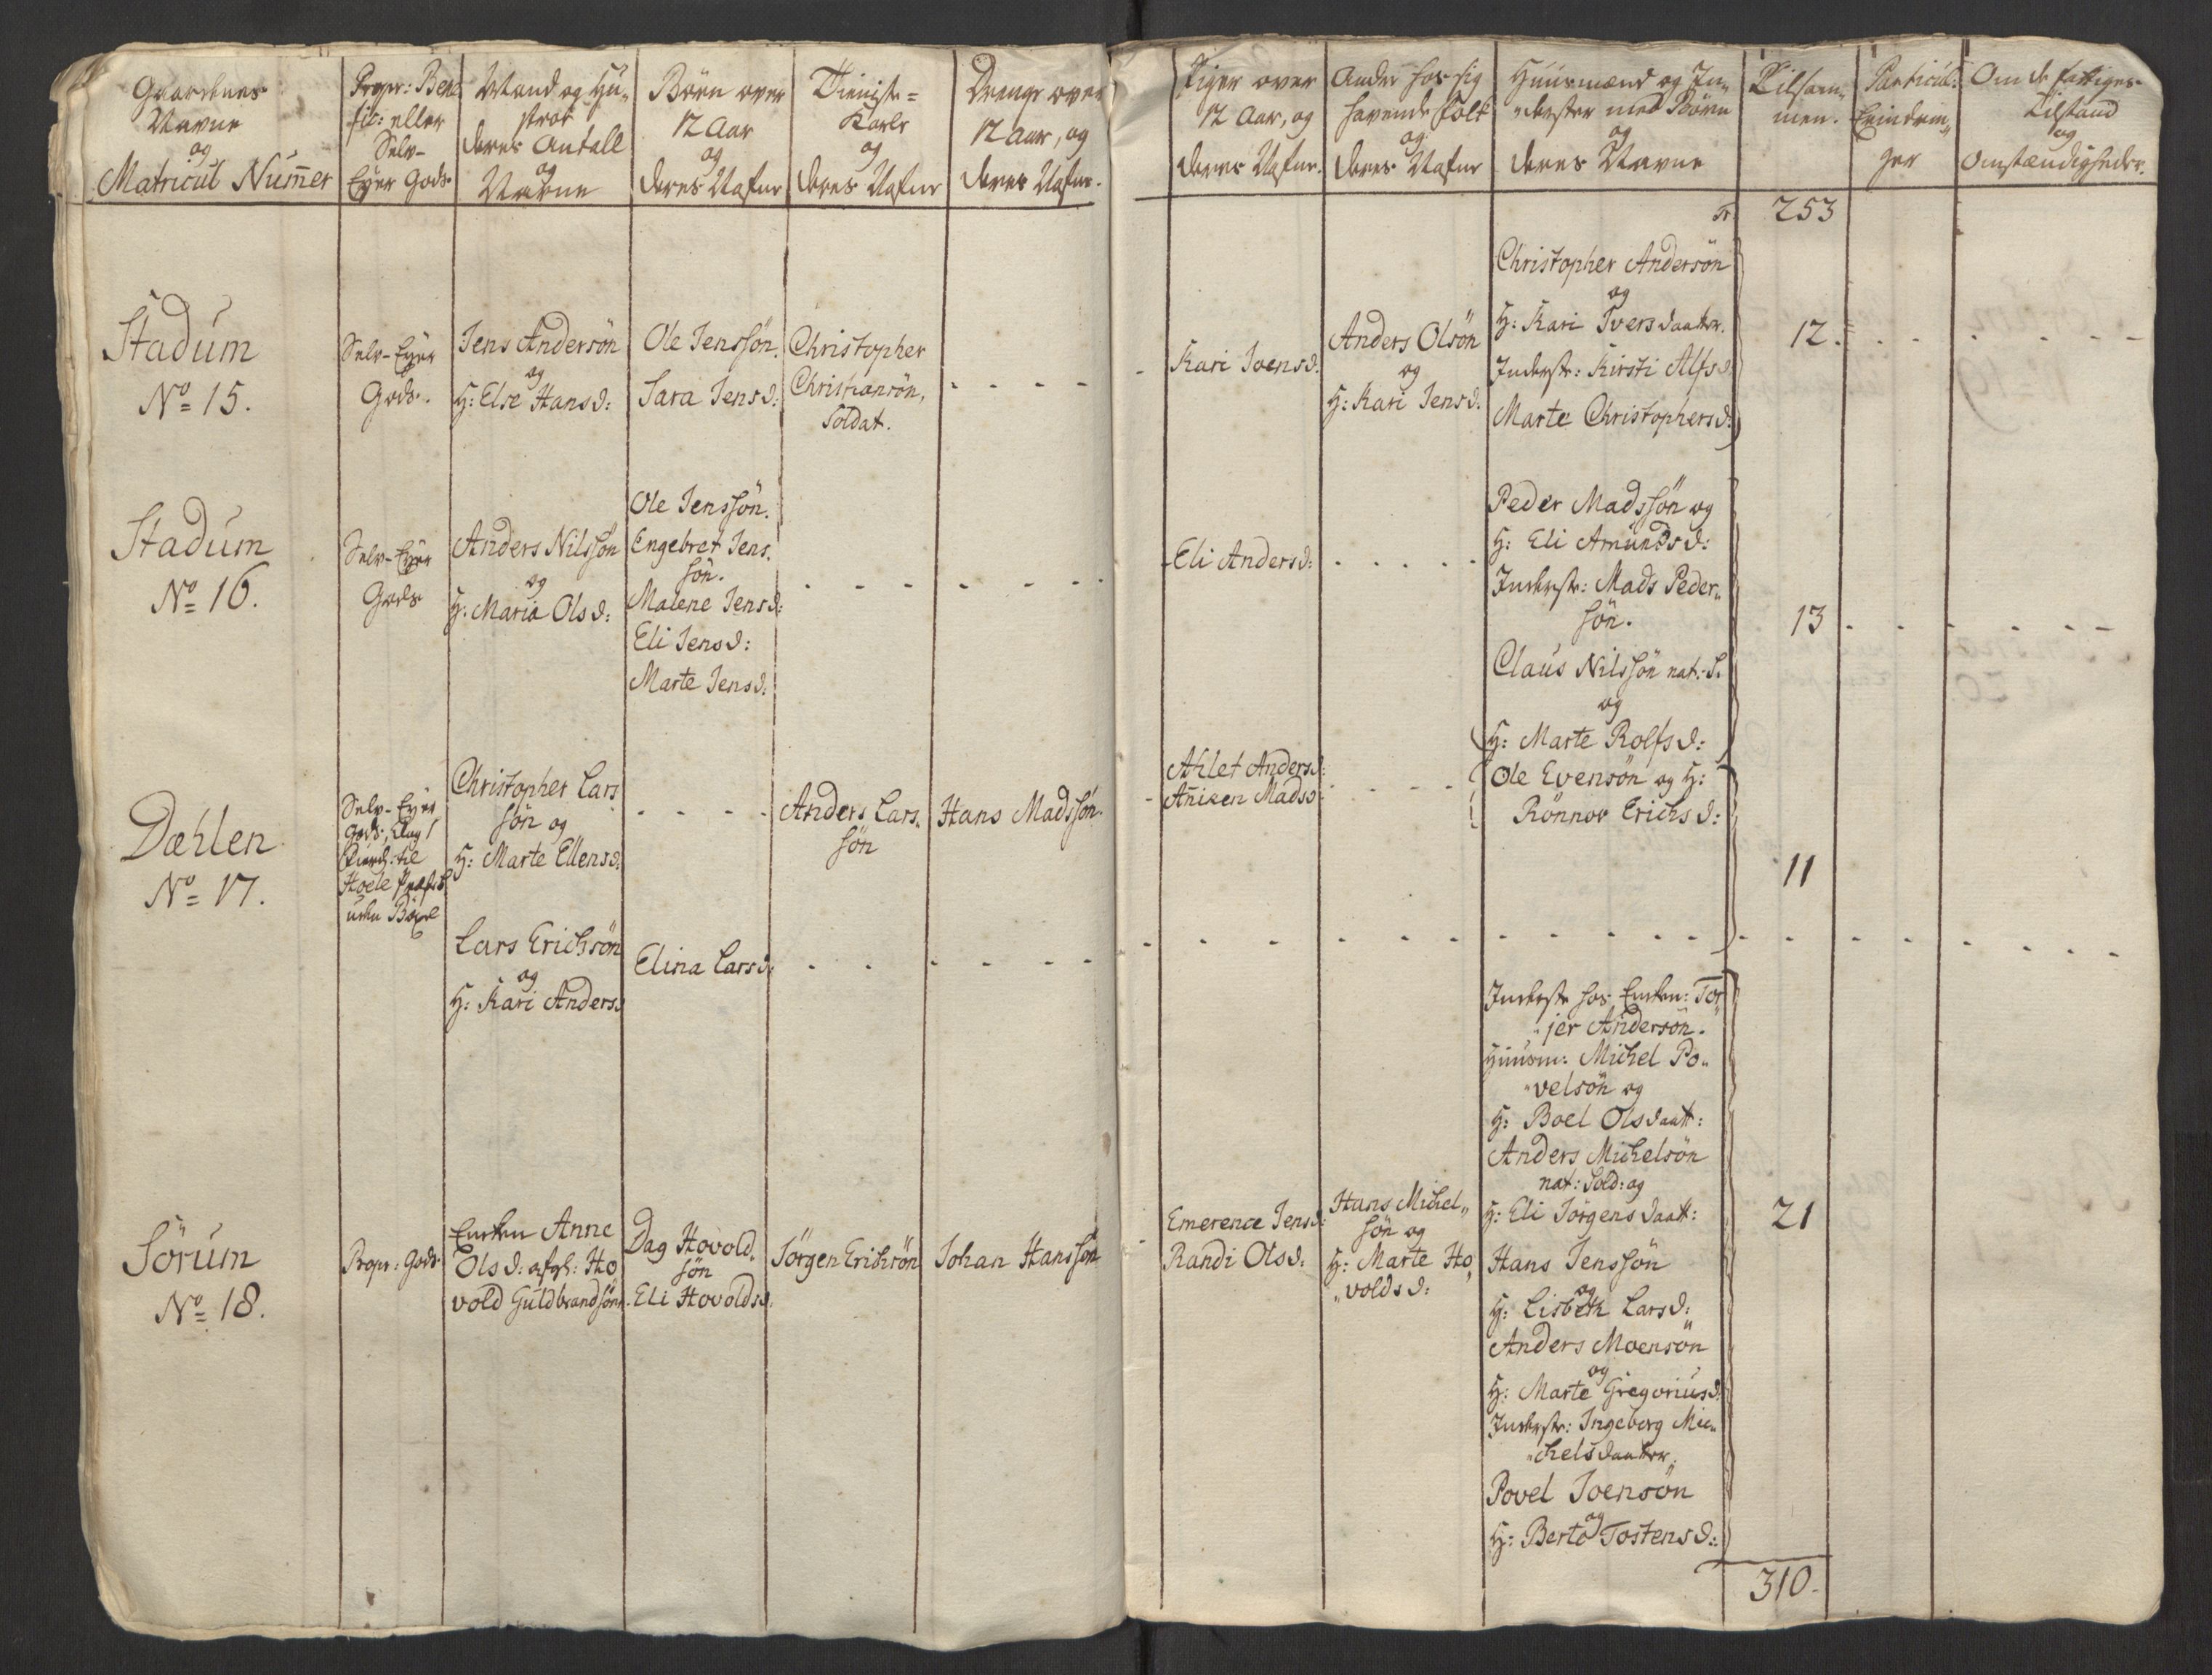 Gaardenes
Navne
og
Matricul Num̅er
Propr: Bene
fic: eller
Selv-
Eyer Gods
Mand og Hu„
strue
deres Antall
og
Navne
Börn over
12 Aar
og
deres Nafne
Tieniste=
Karle
og
deres Nafne
Drenge over
12 Aar, og
deres Nafne.
Piger over
12 Aar, og
deres Nafne.
Andre hos sig
havende Folk
og
deres Nafne
Huusmænd og In„
derster med Börn
og
deres Navne
Tilsam„
men.
Particul:
Erindrin„
ger
Om de fattiges
Tilstand
og
Omstændigheder.
Tr 253
Stadum
No 15.
Selv-Eyer
Gods.
Jens Andersön
og
H: Else Hansd:
Ole Jenssön.
Sara Jensd:
Christopher
Christiansön,
Soldat.
Kari Joensd.
Anders Olsön
og
H: Kari Jensd.
Christopher Andersön
og
H: Kari Iversdaatter.
Inderste: Kirsti Alfsd.
Marte Christophersd:
12.
Stadum
No 16.
Selv-Eyer
Gods
Anders Nilssön
og
H: Maria Olsd:
Ole Jenssön.
Engebret Jens„
sön.
Malene Jensd:
Eli Jensd:
Marte Jensd:
Eli Andersd:
Peder Madssön og
H: Eli Amundsd:
Inderste: Mads Peder„
sön.
Claus Nilssön nat: S.
og
H: Marte Rolfsd:
13
Dæhlen
No 17.
Selv-Eyer
Gods,
til
Hoele
uden Böxel
Christopher Lars
sön og
H: Marte Ellensd:
Anders Lars„
sön
Hans Madssön.
Ahlet Andersd:
An̄iken Madsd:
Ole Evensön og H:
Rönnov Erichsd:
11
Lars Erichsön
og
H: Kari Andersd
Elina Larsd:
Sörum
No 18.
Propr: Gods
Enken Anne
Olsd: afgl: Ho
vold Guldbrandsöns
Dag Hovold„
sön
Eli Hovoldsd:
Jörgen Erichsön
Johan Hanssön
Emerence Jensd:
Randi Olsd:
Hans Michel„
sön og
H: Marte Ho„
„voldsd:
Inderste hos Enken: Tor
„jer Andersön.
Huusm: Michel Po„
„velsön og
H: Boel Olsdaatt:
Anders Michelsön
nat: Sold: og
H: Eli Jörgensdaatt:
Hans Jenssön
og
H: Lisbeth Larsd:
Anders Moensön
og
H: Marte Gregoriusd:
Inderste: Ingeborg Mic„
„chelsdaatter,
Povel Joensön
og
H: Berte Tostensd:
21
310.